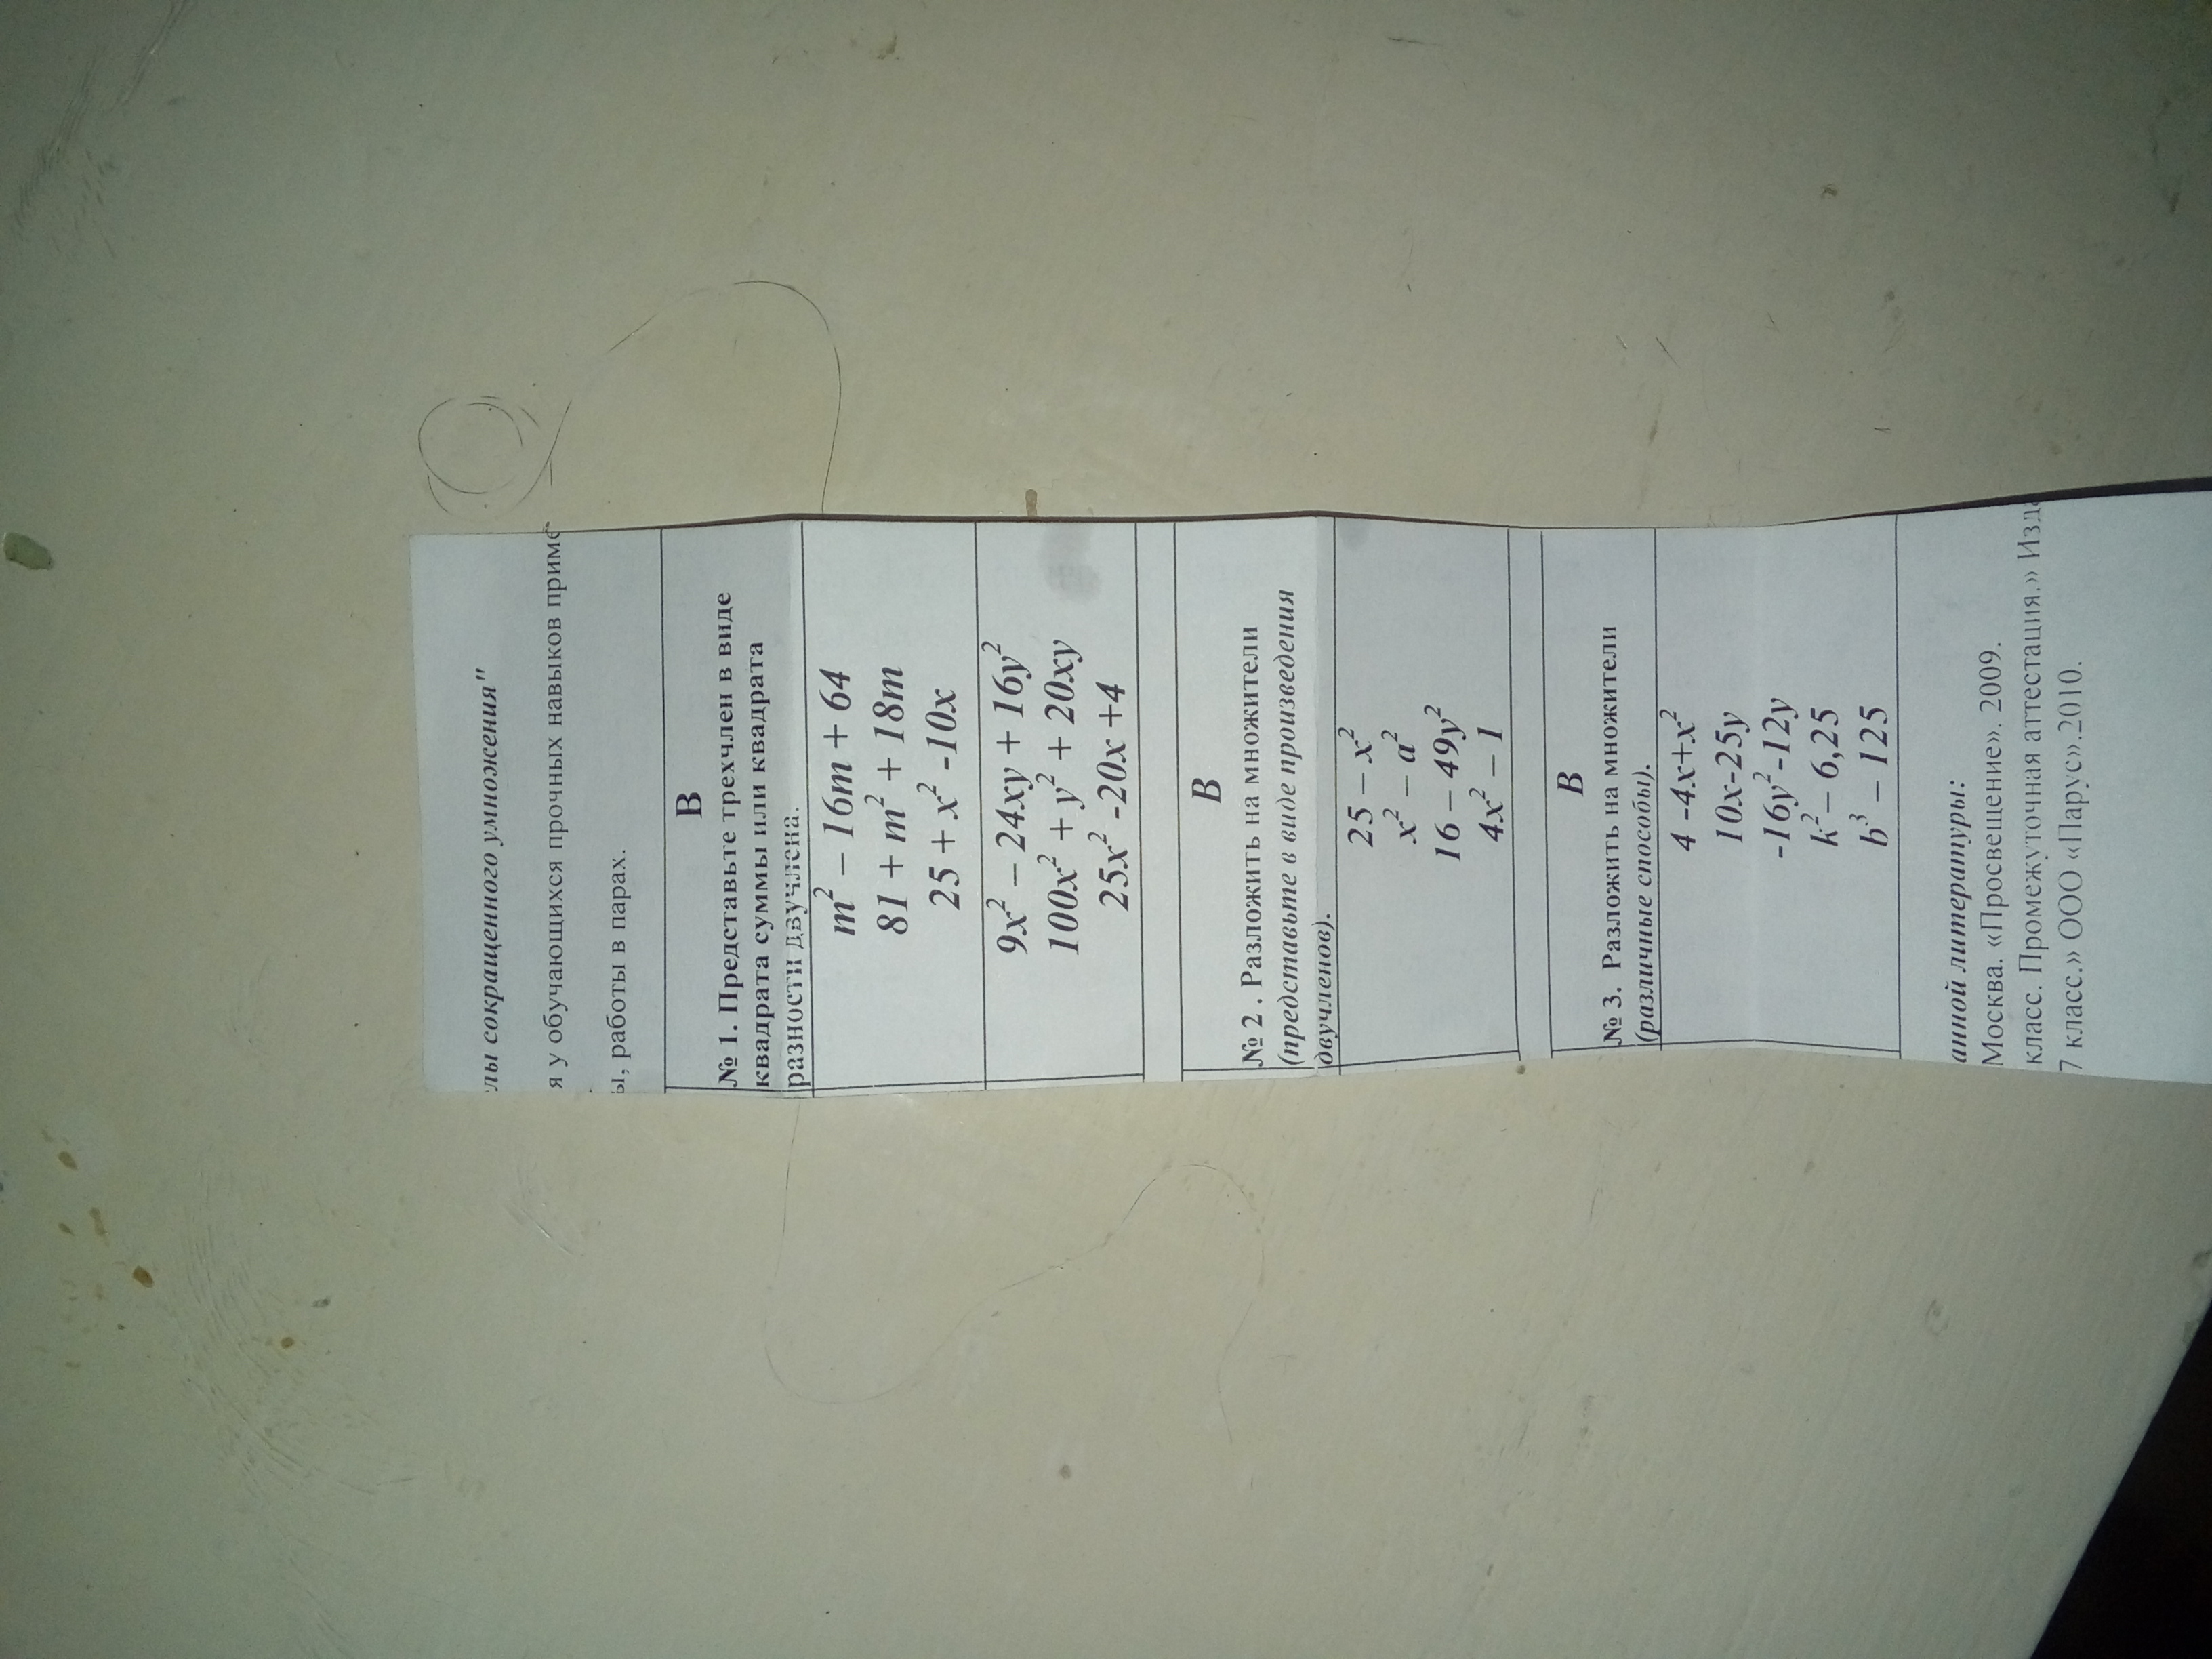 лы сокращенного умножения"
я у обучающихся прочных навыков приме
ы, работы в парах.
В
№ 1. Представьте трехчлен в виде
квадрата суммы или квадрата
разности двучлена.
m² – 16m + 64
81 + m² + 18m
25 + x² -10x
9x² – 24xy + 16y²
100x² + y² + 20xy
25x² -20x +4
В
№ 2 . Разложить на множители
(представьте в виде произведения
двучленов).
25 – x²
x² – a²
16 – 49y²
4x² – 1
В
№ 3. Разложить на множители
(различные способы).
4 -4x+x²
10x-25y
-16y²-12y
k²– 6,25
b³ – 125
анной литературы:
Москва. «Просвещение». 2009.
класс. Промежуточная аттестация.» Изда
7 класс.» ООО «Парус».2010.